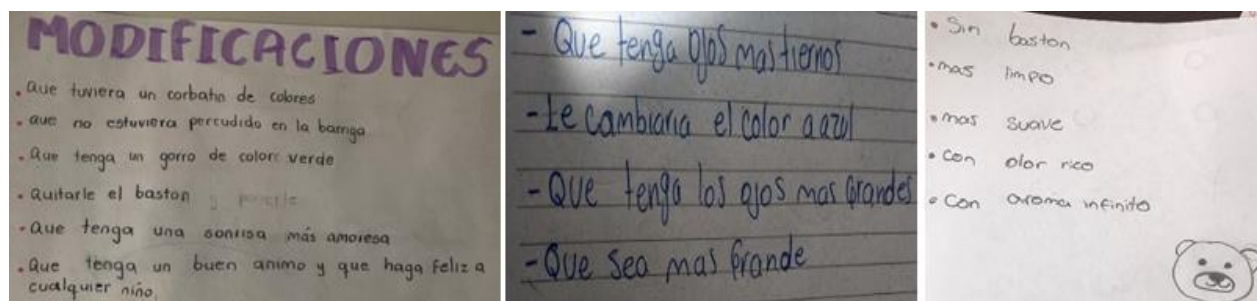 MODIFICACIONES
. Que tuviera un corbatin de colores
. que no estuviera percudido en la barriga
. Que tenga un gorro de color verde
. Quitarle el baston y ponerle
. Que tenga una sonrisa más amorosa
. Que tenga un buen animo y que haga feliz a
cualquier niño.
- Que tenga ojos mas tiernos
- Le cambiaria el color a azul
- Que tenga los ojos mas grandes
- Que sea mas grande
• Sin baston
• mas limpo
• mas suave
• con olor rico
• Con aroma infinito